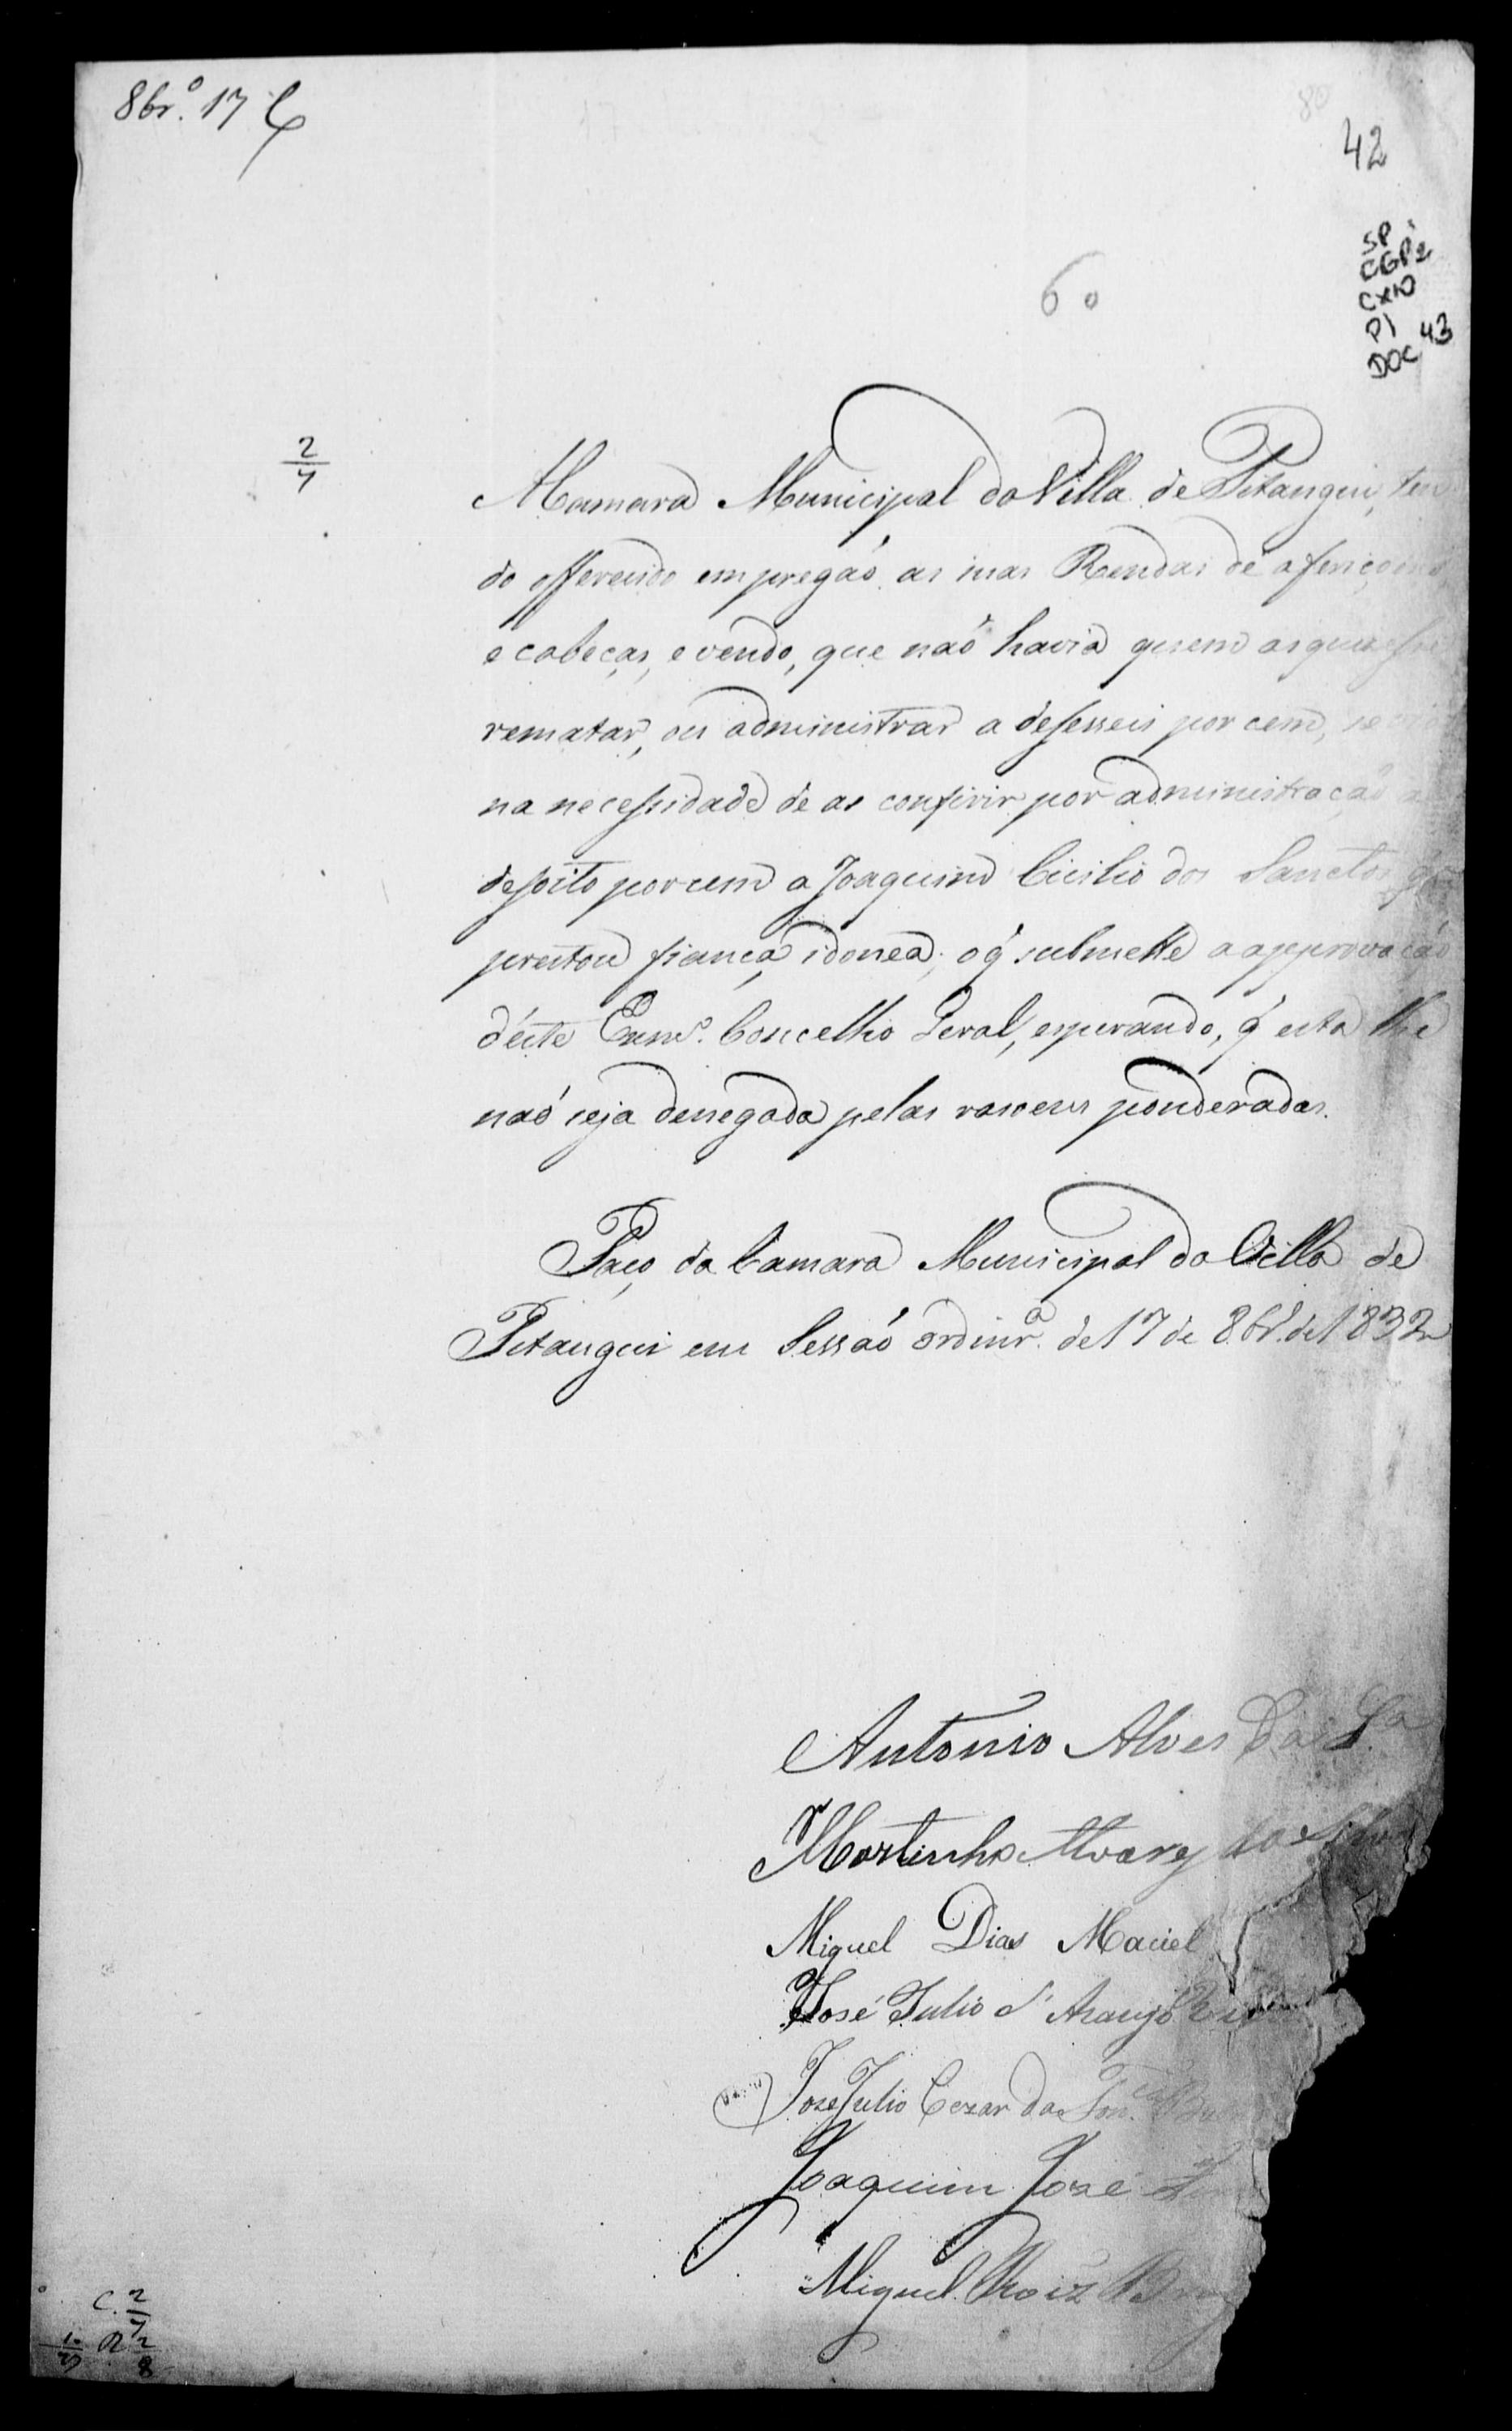 8br.º 17
42
SP
CGP2
CX10
P1
DOC 43
60
2/7
A Camara Municipal da Villa de Pitangui, ten
do offerecido em pregaó as suas Rendas de afericoens,
e cabeças, e vendo, que naó havia quem as quizesse
rematar, ou administrar a desesseis por cem, se
na necessidade de as conferir por administraçaó a
desoito por cem a Joaquim Cicilio dos Sanctos, q̃
prestou fiança idonea; o q̃ submette a approvaçaó
d'éste Exmº. Concelho Geral, esperando, q̃ esta lhe
naó seja denegada pelas rasoens ponderadas.
Paço da Camara Municipal da Villa de
Pitangui em Sessaó ordinrª. de 17 de 8br.º de 1832
Antonio Alves da Sª
Martinho Alvarez da Silva
Miguel Dias Maciel
José Julio d'Araujo
Jose Julio Cezar da Fonca.
Joaquim José
Miguel Roiz
C. 2/7
R 2/8